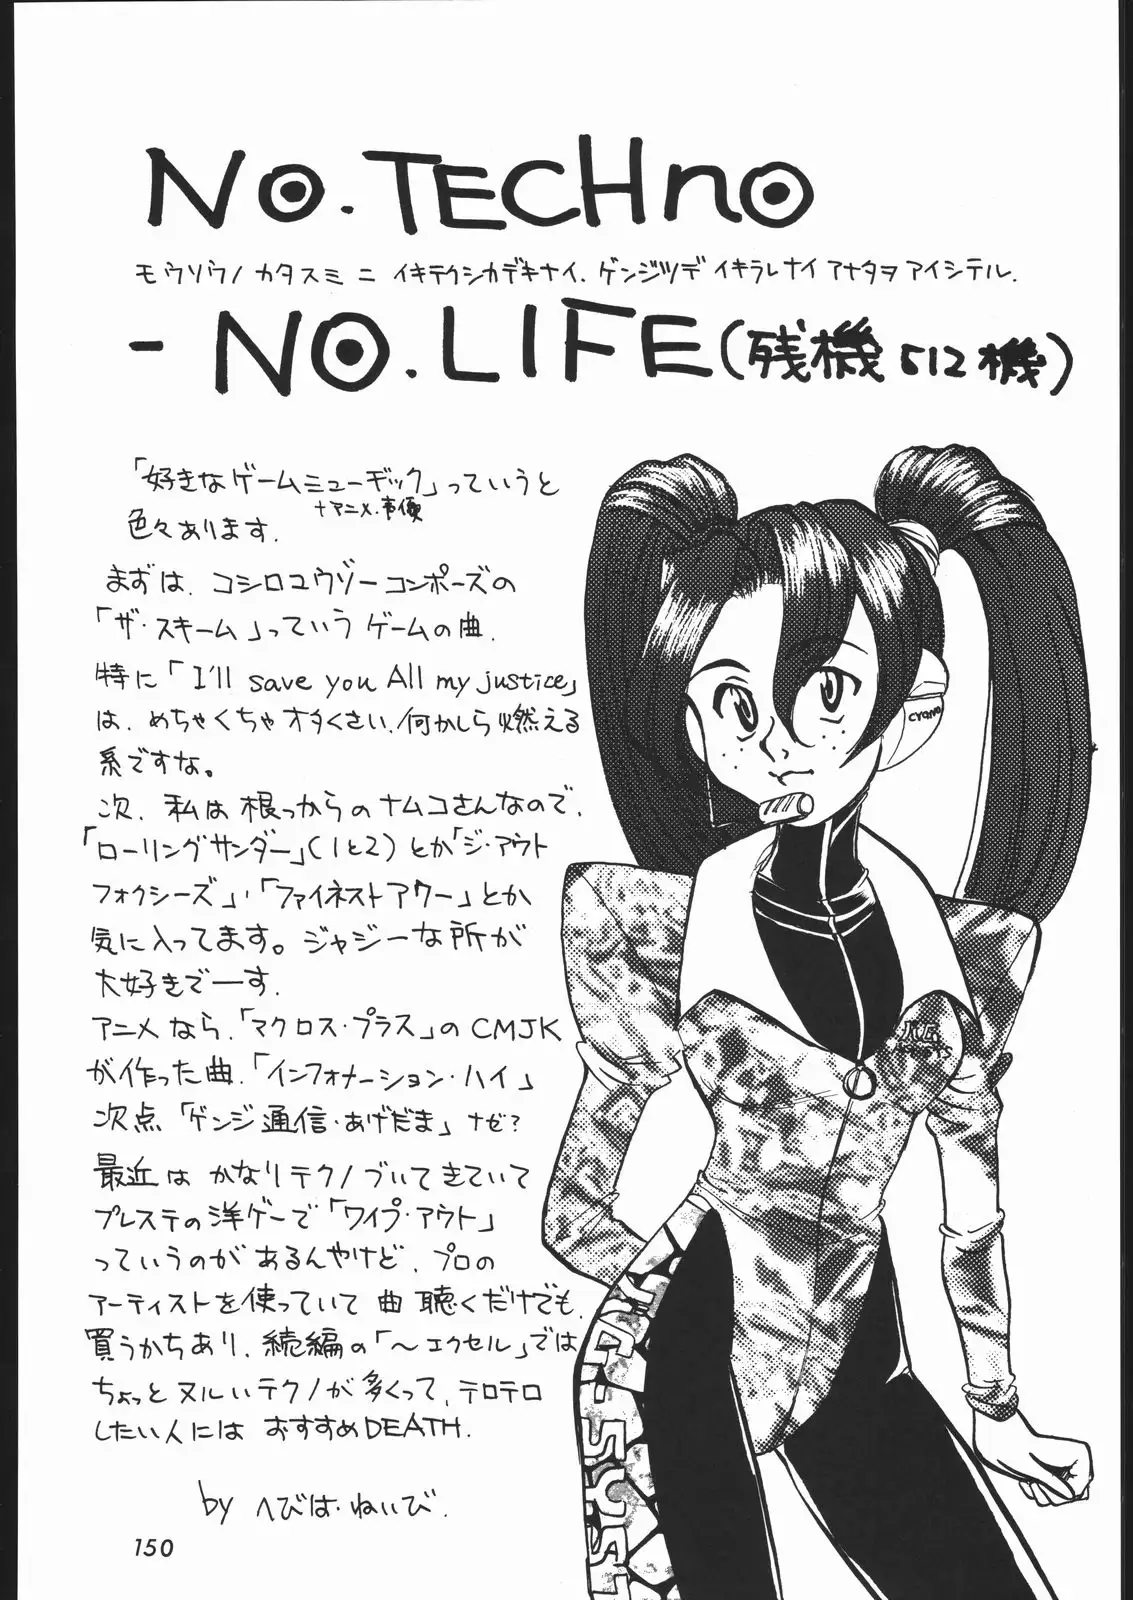 No. TECHno
モウソウノ カタスミ ニ イキテクシカデキナイ. ゲンジツデ イキラレナイ アナタヲ アイシテル.
- NO. LIFE (残機 512機)
「好きなゲームミュージック」っていうと
+アニメ・声優
色々あります.
まずは、コシロユウゾーコンポーズの
「ザ・スキーム」っていう ゲームの曲.
特に「I'll save you All my justice」
は、めちゃくちゃオタくさい、何かしら燃える
系ですな。
次、私は根っからのナムコさんなので、
「ローリングサンダー」(1と2)とか「ジ・アウト
フォクシーズ」、「ファイネストアワー」とか
気に入ってます。ジャジーな所が
大好きでーす.
アニメなら、「マクロス・プラス」のCMJK
が作った曲、「インフォメーション・ハイ」
次点「ゲンジ通信・あげだま」ナゼ?
最近は かなりテクノづいてきていて
プレステの洋ゲーで「ワイプ・アウト」
っていうのがあるんやけど、プロの
アーティストを使っていて 曲聴くだけでも、
買うかちあり、続編の「〜エクセル」では
ちょっとヌルいテクノが多くって、テロテロ
したい人には おすすめDEATH.
by へびは・ねいび.
150
SYST